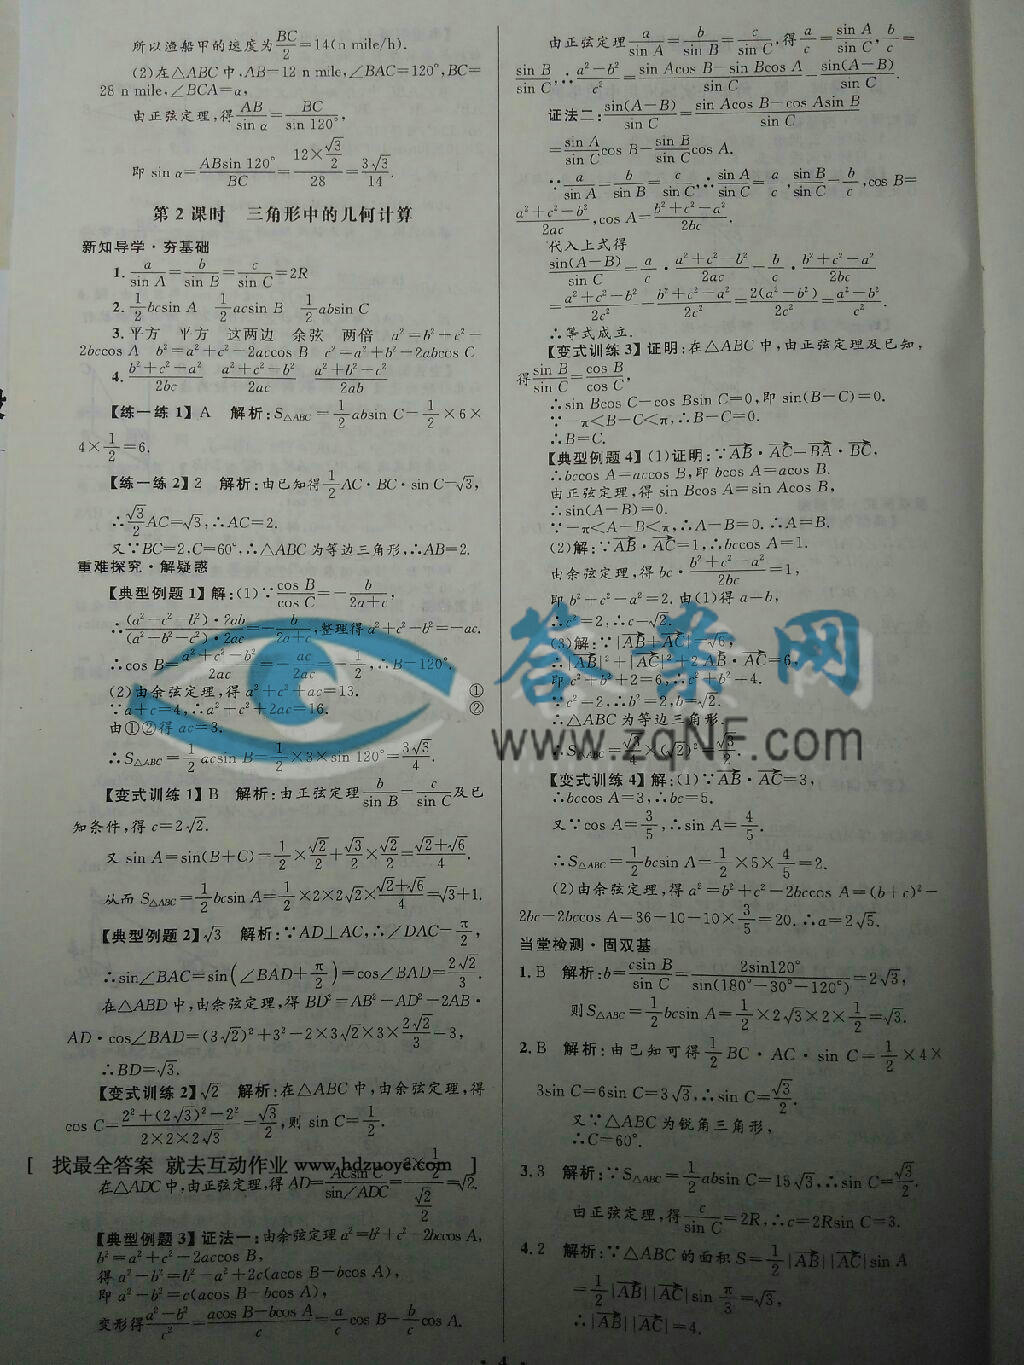 所以渔船甲的速度为BC/2=14(n mile/h).
(2)在△ABC中,AB=12 n mile,∠BAC=120°,BC=
28 n mile,∠BCA=α,
由正弦定理,得AB/sin α=BC/sin 120°,
即 sin α=ABsin 120°/BC=(12×√3/2)/28=3√3/14.
第2课时 三角形中的几何计算
新知导学·夯基础
1. a/sin A=b/sin B=c/sin C=2R
2. 1/2 bcsin A 1/2 acsin B 1/2 absin C
3. 平方 平方 这两边 余弦 两倍 a²=b²+c²-
2bccos A b²=a²+c²-2accos B c²=a²+b²-2abcos C
4. (b²+c²-a²)/2bc (a²+c²-b²)/2ac (a²+b²-c²)/2ab
【练一练1】A 解析:S△ABC=1/2 absin C=1/2×6×
4×1/2=6.
【练一练2】2 解析:由已知得1/2 AC·BC·sin C=√3,
∴√3/2 AC=√3,∴AC=2.
又∵BC=2,C=60°,∴△ABC为等边三角形,∴AB=2.
重难探究·解疑惑
【典型例题1】解:(1)∵cos B/cos C=-b/(2a+c),
∴(a²+c²-b²)·2ab/(a²+b²-c²)·2ac=-b/(2a+c),整理得a²+c²-b²=-ac.
∴cos B=(a²+c²-b²)/2ac=-ac/2ac=-1/2,∴B=120°.
(2)由余弦定理,得a²+c²+ac=13. ①
∵a+c=4,∴a²+c²+2ac=16. ②
由①②得ac=3.
∴S△ABC=1/2 acsin B=1/2×3×sin 120°=3√3/4.
【变式训练1】B 解析:由正弦定理b/sin B=c/sin C及已
知条件,得c=2√2.
又sin A=sin(B+C)=1/2×√2/2+√3/2×√2/2=(√2+√6)/4.
从而S△ABC=1/2 bcsin A=1/2×2×2√2×(√2+√6)/4=√3+1.
【典型例题2】√3 解析:∵AD⊥AC,∴∠DAC=π/2,
∴sin∠BAC=sin(∠BAD+π/2)=cos∠BAD=2√2/3.
在△ABD中,由余弦定理,得BD²=AB²+AD²-2AB·
AD·cos∠BAD=(3√2)²+3²-2×3√2×3×2√2/3=3,
∴BD=√3.
【变式训练2】√2 解析:在△ABC中,由余弦定理,得
cos C=(2²+(2√3)²-2²)/(2×2×2√3)=√3/2,则 sin C=1/2.
[ 找最全答案 就去互动作业 www.hdzuoye.com ]
在△ADC中,由正弦定理,得AD=ACsin C/sin∠ADC=(2×1/2)/(√2/2)=√2.
【典型例题3】证法一:由余弦定理a²=b²+c²-2bccos A,
b²=a²+c²-2accos B,
得a²-b²=b²-a²+2c(acos B-bcos A),
即a²-b²=c(acos B-bcos A),
变形得(a²-b²)/c²=(acos B-bcos A)/c=a/c cos B-b/c cos A.
由正弦定理a/sin A=b/sin B=c/sin C,得a/c=sin A/sin C,b/c=
sin B/sin C,∴(a²-b²)/c²=(sin Acos B-sin Bcos A)/sin C=sin(A-B)/sin C.
证法二:sin(A-B)/sin C=(sin Acos B-cos Asin B)/sin C
=sin A/sin C cos B-sin B/sin C cos A.
∵a/sin A=b/sin B=c/sin C,∴sin A/sin C=a/c,sin B/sin C=b/c,cos B=
(a²+c²-b²)/2ac,cos A=(b²+c²-a²)/2bc.
代入上式得
sin(A-B)/sin C=a/c·(a²+c²-b²)/2ac-b/c·(b²+c²-a²)/2bc
=(a²+c²-b²)/2c²-(b²+c²-a²)/2c²=2(a²-b²)/2c²=(a²-b²)/c².
∴等式成立.
【变式训练3】证明:在△ABC中,由正弦定理及已知,
得sin B/sin C=cos B/cos C,
∴sin Bcos C-cos Bsin C=0,即 sin(B-C)=0.
∵-π<B-C<π,∴B-C=0.
∴B=C.
【典型例题4】(1)证明:∵AB·AC=BA·BC,
∴bccos A=accos B,即bcos A=acos B.
由正弦定理,得 sin Bcos A=sin Acos B,
∴sin(A-B)=0.
∵-π<A-B<π,∴A-B=0.∴A=B.
(2)解:∵AB·AC=1,∴bccos A=1.
由余弦定理,得bc·(b²+c²-a²)/2bc=1,
即b²+c²-a²=2.由(1)得a=b,
∴c²=2,∴c=√2.
(3)解:∵|AB+AC|=√6,
∴|AB|²+|AC|²+2AB·AC=6,
即c²+b²+2=6,∴c²+b²=4.
∵c²=2,∴b²=2,b=√2.
∴△ABC为等边三角形.
∴S△ABC=√3/4×(√2)²=√3/2.
【变式训练4】解:(1)∵AB·AC=3,
∴bccos A=3,∴bc=5.
又∵cos A=3/5,∴sin A=4/5.
∴S△ABC=1/2 bcsin A=1/2×5×4/5=2.
(2)由余弦定理,得a²=b²+c²-2bccos A=(b+c)²-
2bc-2bccos A=36-10-10×3/5=20.∴a=2√5.
当堂检测·固双基
1. B 解析:b=csin B/sin C=2sin120°/sin(180°-30°-120°)=2√3,
则S△ABC=1/2 bcsin A=1/2×2√3×2×1/2=√3.
2. B 解析:由已知可得1/2 BC·AC·sin C=1/2×4×
3sin C=6sin C=3√3,∴sin C=√3/2.
又∵△ABC为锐角三角形,
∴C=60°.
3. 3 解析:∵S△ABC=1/2 absin C=15√3,∴sin C=√3/2.
由正弦定理,得c/sin C=2R,∴c=2Rsin C=3.
4. 2 解析:∵△ABC的面积S=1/2|AB||AC|sin A
=1/2|AB||AC|sin π/3=√3,
∴|AB||AC|=4.
·4·
答案网
www.zqNF.com